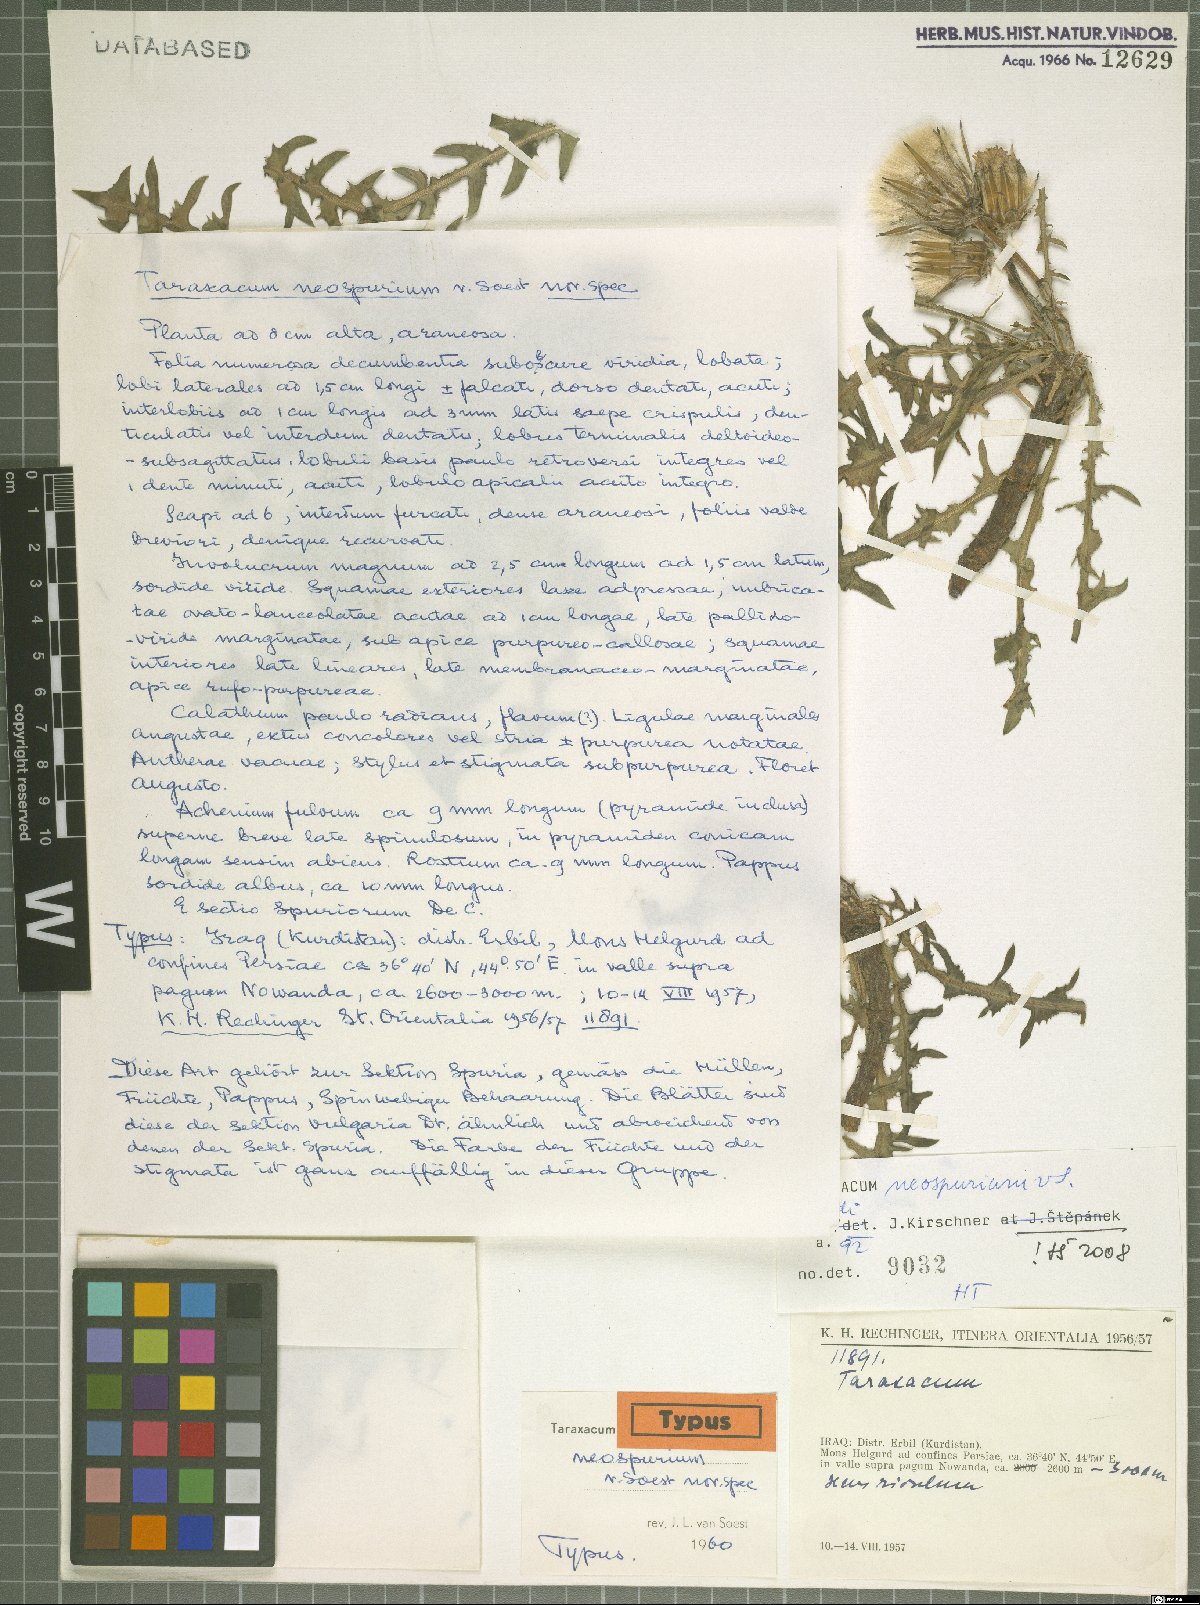 DATABASED
HERB.MUS.HIST.NATUR.VINDOB.
Acqu. 1966 No. 12629
Taraxacum neospurium v. Soest nov. spec
Planta ad 8 cm alta, araneosa.
Folia numerosa decumbentia subobscure viridia, lobata;
lobi laterales ad 1,5 cm longi ± falcati, dorso dentati, acuti;
interlobiis ad 1 cm longis ad 3 mm latis saepe crispulis, den-
ticulatis vel interdum dentatis; lobus terminalis deltoideo-
-subsagittatus, lobuli basis paulo retroversi integres vel
1 dente minuti, acuti, lobulo apicali acuto integro.
Scapi ad 6, interdum furcati, dense araneosi, foliis valde
breviori, denique recurvati.
Involucrum magnum ad 2,5 cm longum ad 1,5 cm latum,
sordide viride. Squamae exteriores laxe adpressae; imbrica-
tae ovato-lanceolatae acutae ad 1 cm longae, late pallido-
-viride marginatae, sub apice purpureo-callosae; squamae
interiores late lineares, late membranaceo-marginatae,
apice rufo-purpureae.
Calathium paulo radians, flavum (?). Ligulae marginales
angustae, extus concolores vel stria ± purpurea notatae.
Antherae vacuae; stylus et stigmata subpurpurea. Floret
augusto.
Achenium fulvum ca 9 mm longum (pyramide inclusa)
superne breve late spinulosum, in pyramiden conicam
longam sensim abiens. Rostrum ca. 9 mm longum. Pappus
sordide albus, ca 10 mm longus.
E sectio Spuriorum De C.
Typus: Iraq (Kurdistan): distr. Erbil, Mons Helgurd ad
confines Persiae ca 36° 40' N, 44° 50' E. in valle supra
pagum Nowanda, ca. 2600-3000 m.; 10-14 VIII 1957,
K. H. Rechinger It. Orientalia 1956/57 11891.
Diese Art gehört zur Sektion Spuria, gemäss die Hüllen,
Früchte, Pappus, Spinwebige Behaarung. Die Blätter sind
diese der Sektion Vulgaria Dt. ähnlich und abweichend von
denen der Sekt. Spuria. Die Farbe der Früchte und der
Stigmata ist ganz auffällig in dieser Gruppe.
cm 0 1 2 3 4 5 6 7 8 9 10
copyright reserved
W
ACUM neospurium v S.
det. J.Kirschner et J.Štěpánek
a. 92
! JŠ 2008
no.det. 9032
HT
K. H. RECHINGER, ITINERA ORIENTALIA 1956/57
11891.
Taraxacum
IRAQ: Distr. Erbil (Kurdistan).
Mons Helgurd ad confines Persiae, ca. 36°40' N, 44°50' E,
in valle supra pagum Nowanda, ca. 2000 2600 m - 3000 m
10.—14. VIII. 1957
Typus
Taraxacum
neospurium
v. Soest nov. spec
rev. J. L. van Soest
1960
Typus.